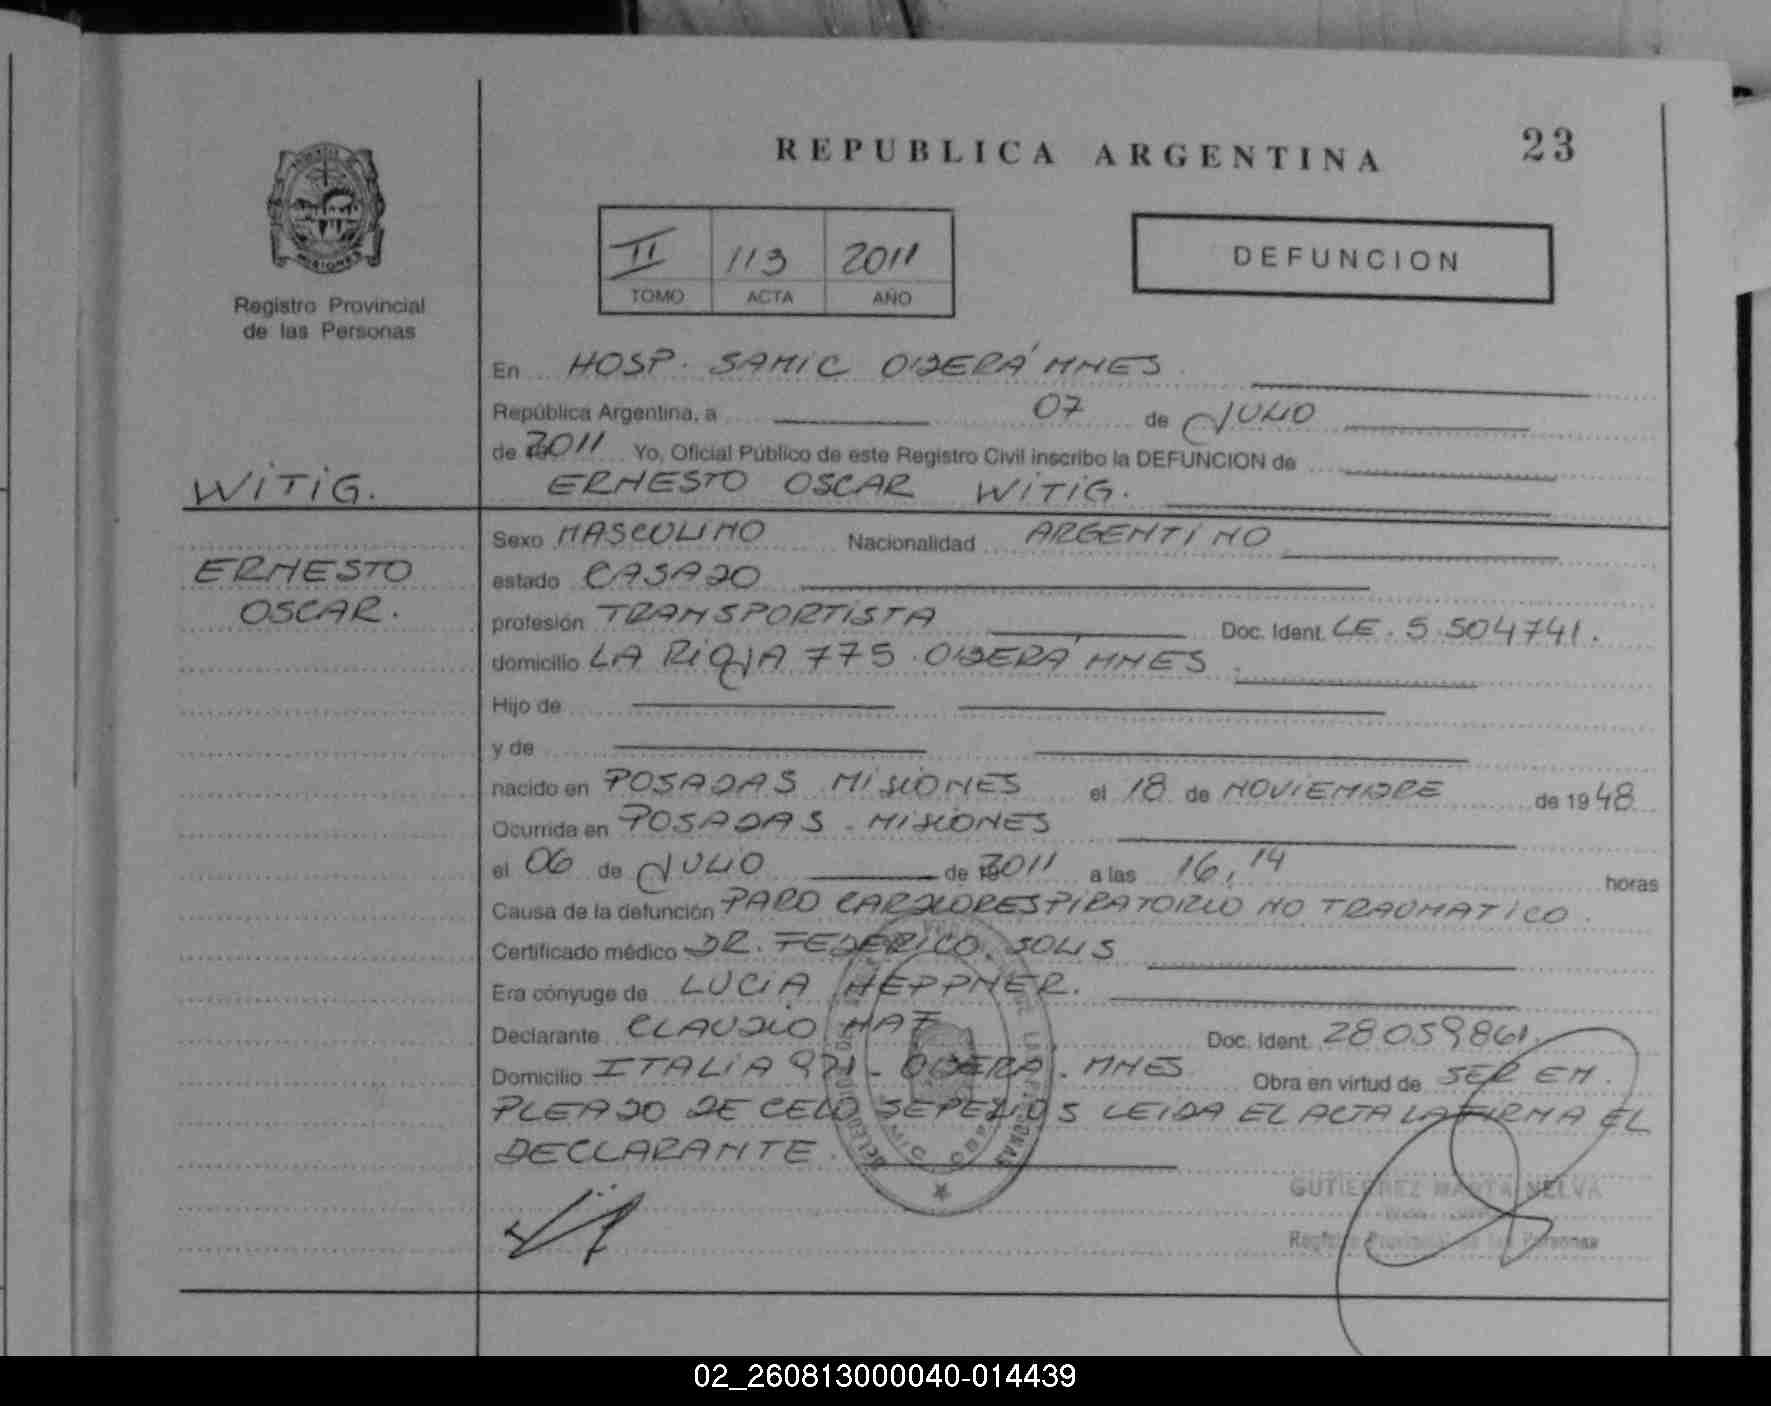 REPUBLICA ARGENTINA
23
MISIONES
Registro Provincial
de las Personas
II 113 2011
TOMO ACTA AÑO
DEFUNCION
En HOSP. SAMIC OBERÁ MNES
República Argentina, a 07 de JULIO
de 2011 Yo, Oficial Público de este Registro Civil inscribo la DEFUNCION de
WITIG.
ERNESTO OSCAR WITIG.
ERNESTO
OSCAR.
Sexo MASCULINO Nacionalidad ARGENTINO
estado CASADO
profesión TRANSPORTISTA Doc. Ident. LE. 5.504741.
domicilio LA RIOJA 775. OBERÁ MNES
Hijo de
y de
nacido en POSADAS MISIONES el 18 de NOVIEMBRE de 1948
Ocurrida en POSADAS - MISIONES
el 06 de JULIO de 2011 a las 16,14 horas
Causa de la defunción PARO CARDIORESPIRATORIO NO TRAUMATICO.
Certificado médico DR. FEDERICO SOLIS
Era cónyuge de LUCIA HEPPNER.
Declarante CLAUDIO Doc. Ident. 28059861.
Domicilio ITALIA - OBERA. MNES Obra en virtud de SER EM
PLEADO DE CELO SEPELIOS LEIDA EL ACTA LA FIRMA EL
DECLARANTE.
GUTIERREZ MARTA NELVA
Registro Provincial de las Personas
02_260813000040-014439